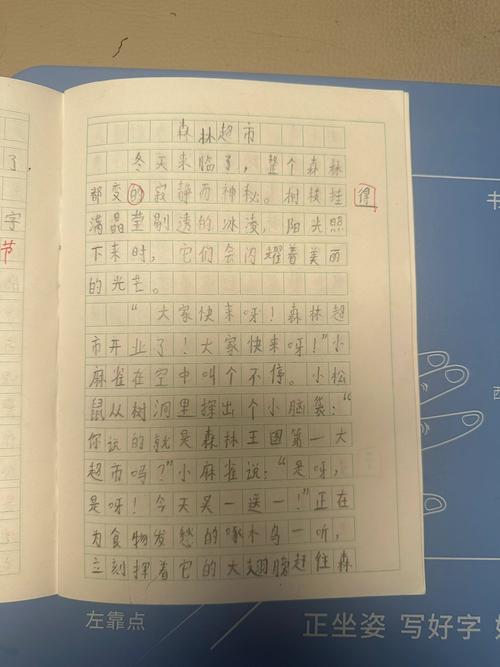 森林超市
冬天来临了，整个森林
都变的寂静而神秘。树枝挂 得
满晶莹剔透的冰凌，阳光照
下来时，它们会闪耀着美丽
的光芒。
“大家快来呀！森林超
市开业了！大家快来呀！”小
麻雀在空中叫个不停。小松
鼠从树洞里探出个小脑袋：“
你说的就是森林王国第一大
超市吗？”小麻雀说：“是呀，
是呀！今天买一送一！”正在
为食物发愁的啄木鸟一听，
立刻挥着它的大翅膀赶往森
了，
字
节
书
左靠点
正坐姿 写好字